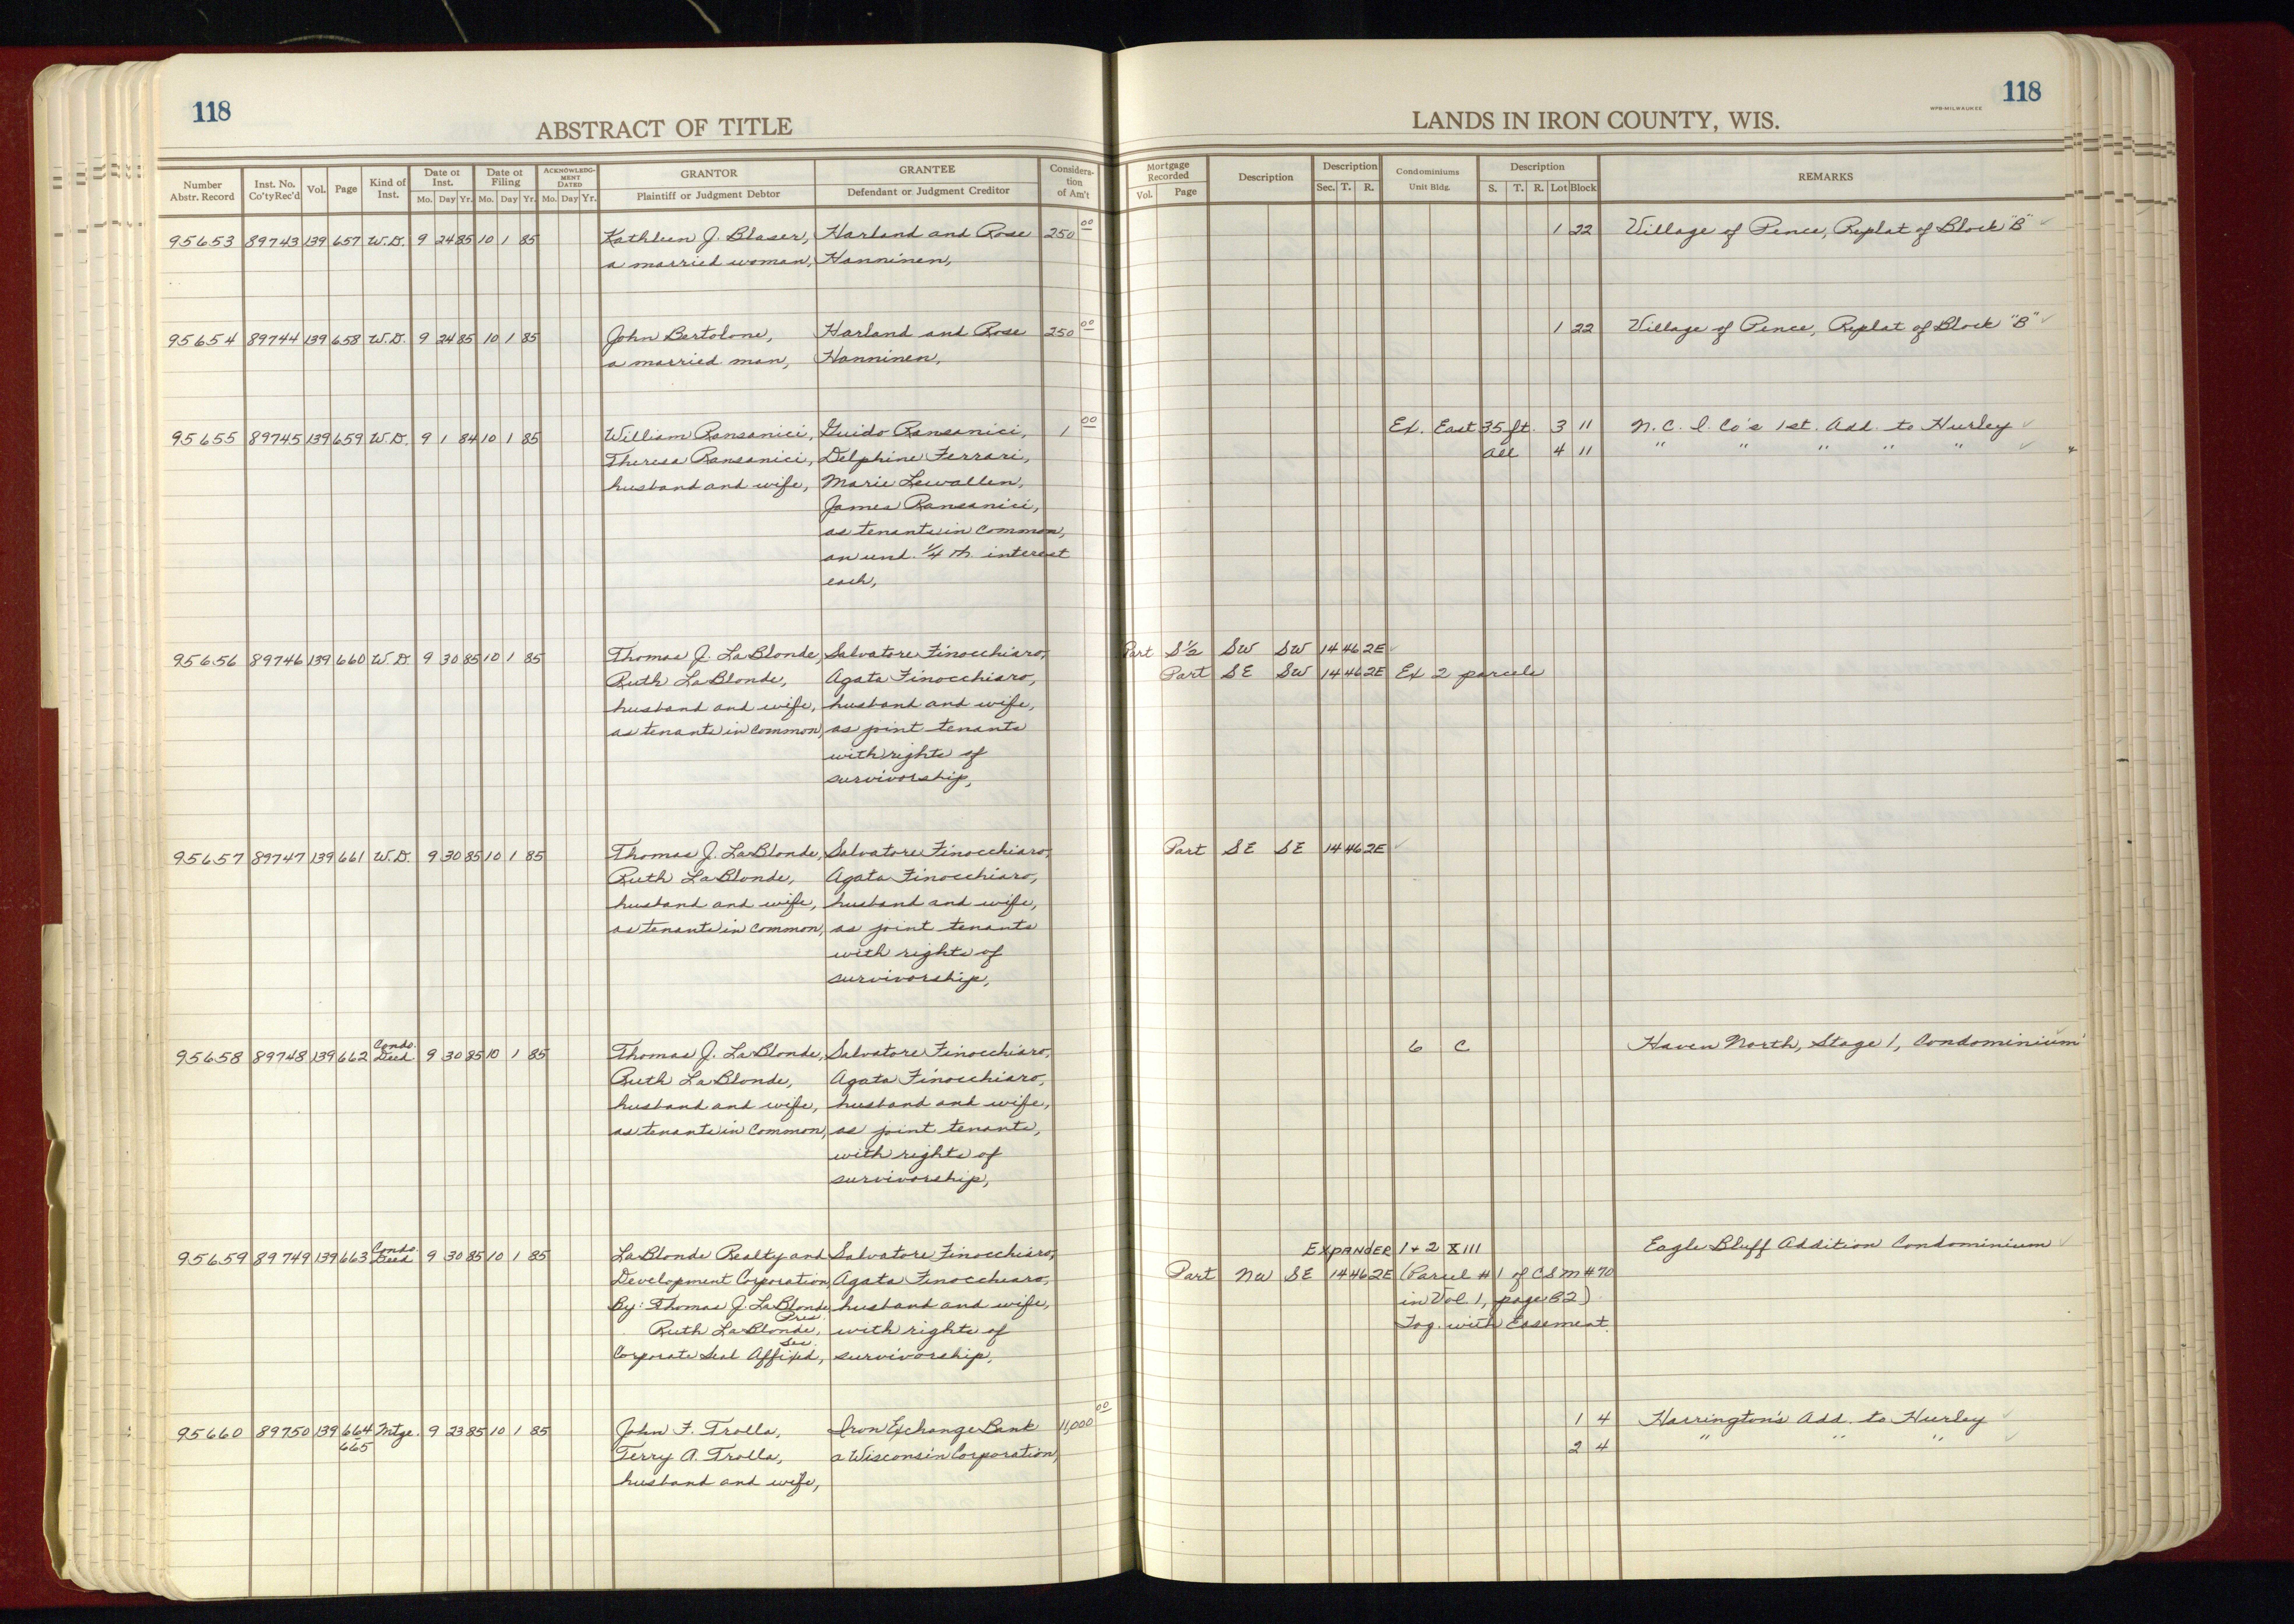 118
ABSTRACT OF TITLE
Number Abstr. Record | Inst. No. Co'ty Rec'd | Vol. | Page | Kind of Inst. | Date of Inst. Mo. Day Yr. | Date of Filing Mo. Day Yr. | ACKNOWLEDGMENT DATED Mo. Day Yr. | GRANTOR Plaintiff or Judgment Debtor | GRANTEE Defendant or Judgment Creditor | Consideration of Am't
95653 89743 139 657 W.D. 9 24 85 10 1 85 Kathleen J. Blaser, Harland and Rose 250 00
a married woman, Hanninen,
95654 89744 139 658 W.D. 9 24 85 10 1 85 John Bertolone, Harland and Rose 250 00
a married man, Hanninen,
95655 89745 139 659 W.D. 9 1 84 10 1 85 William Ransanici, Guido Ransanici, 1 00
Theresa Ransanici, Delphine Ferrari,
husband and wife, Marie Lewallen,
James Ransanici,
as tenants in common,
an und. 1/4 th. interest
each,
95656 89746 139 660 W.D. 9 30 85 10 1 85 Thomas J. LaBlonde, Salvatore Finocchiaro,
Ruth LaBlonde, Agata Finocchiaro,
husband and wife, husband and wife,
as tenants in common, as joint tenants
with rights of
survivorship,
95657 89747 139 661 W.D. 9 30 85 10 1 85 Thomas J. LaBlonde, Salvatore Finocchiaro,
Ruth LaBlonde, Agata Finocchiaro,
husband and wife, husband and wife,
as tenants in common, as joint tenants
with rights of
survivorship,
95658 89748 139 662 Condo. Deed 9 30 85 10 1 85 Thomas J. LaBlonde, Salvatore Finocchiaro,
Ruth LaBlonde, Agata Finocchiaro,
husband and wife, husband and wife,
as tenants in common, as joint tenants,
with rights of
survivorship,
95659 89749 139 663 Condo. Deed 9 30 85 10 1 85 LaBlonde Realty and Salvatore Finocchiaro,
Development Corporation, Agata Finocchiaro,
By: Thomas J. LaBlonde, Pres. husband and wife,
Ruth LaBlonde, Sec. with rights of
Corporate Seal Affixed, survivorship,
95660 89750 139 664 Mtge. 9 23 85 10 1 85 John F. Trolla, Iron Exchange Bank 11,000 00
665 Terry A. Trolla, a Wisconsin Corporation,
husband and wife,
118
WPB-MILWAUKEE
LANDS IN IRON COUNTY, WIS.
Mortgage Recorded Vol. Page | Description | Description Sec. T. R. | Condominiums Unit Bldg. | Description S. T. R. Lot Block | REMARKS
1 22 Village of Pence, Replat of Block "B"
1 22 Village of Pence, Replat of Block "B"
Ex. East 35 ft. 3 11 N. C. I. Co's 1st. Add. to Hurley
All 4 11 " " " " "
Part S½ SW SW 14 46 2E
Part SE SW 14 46 2E Ex 2 parcels
Part SE SE 14 46 2E
6 C Haven North, Stage 1, Condominium
EXPANDER 1 + 2 XIII Eagle Bluff Addition Condominium
Part NW SE 14 46 2E (Parcel #1 of CSM #70
in Vol 1, page 82)
Tog. with Easement.
1 4 Harrington's Add. to Hurley
2 4 " " "